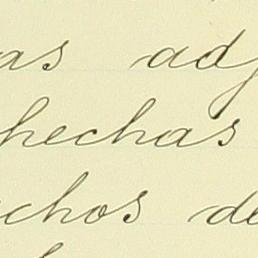 as adj
hechas
chos de